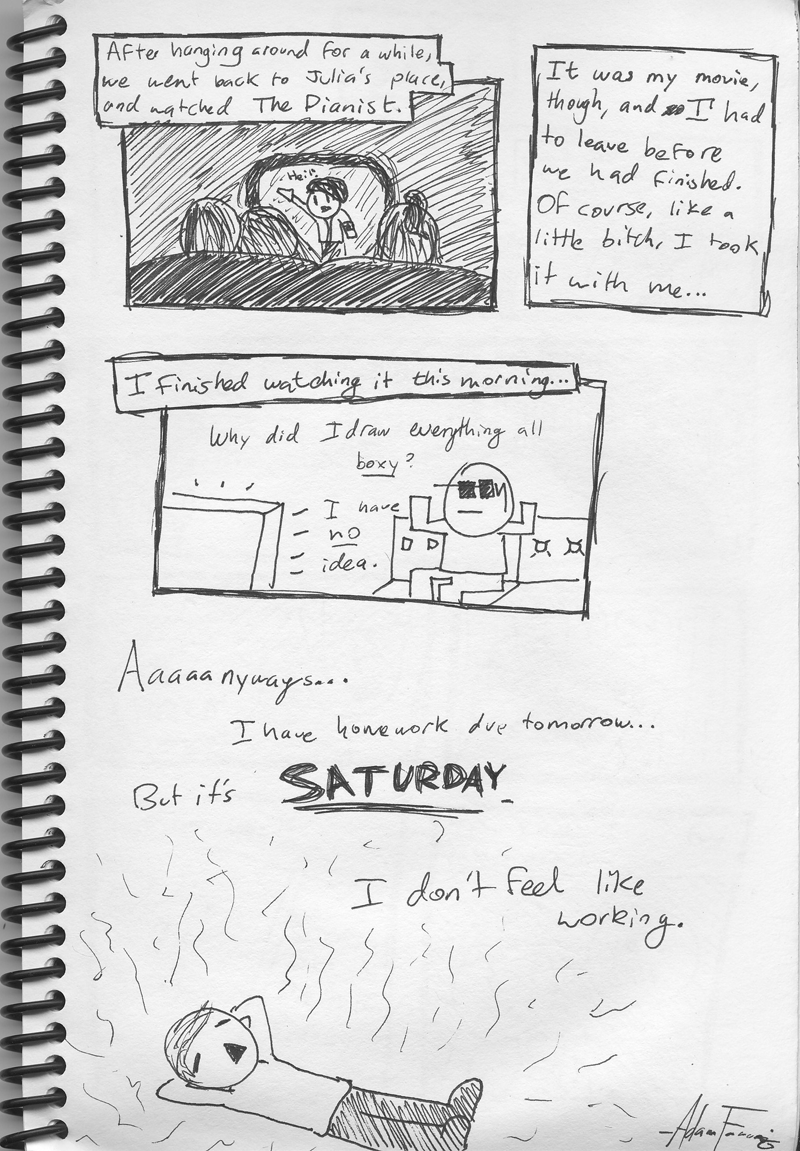 After hanging around for a while,
we went back to Julia's place,
and watched The Pianist.
Heil!
It was my movie,
though, and I had
to leave before
we had finished.
Of course, like a
little bitch, I took
it with me...
I finished watching it this morning...
Why did I draw everything all
boxy?
- I have
- no
- idea.
Aaaaanyways...
I have homework due tomorrow...
But it's SATURDAY.
I don't feel like
working.
-Adam